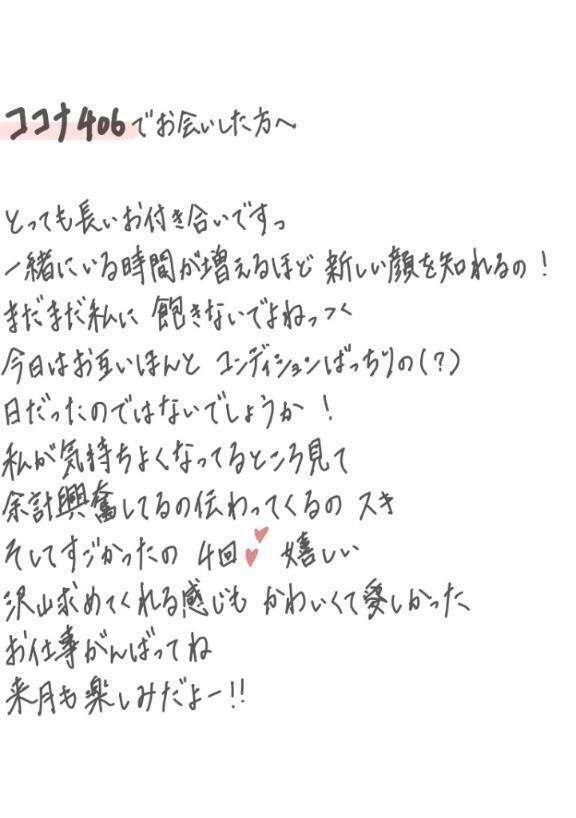 ココナ406でお会いした方へ
とっても長いお付き合いですっ
一緒にいる時間が増えるほど 新しい顔を知れるの！
まだまだ私に 飽きないでよねっつく
今日はお互いほんと コンディションばっちりの(?)
日だったのではないでしょうか！
私が気持ちよくなってるところ見て
余計興奮してるの伝わってくるの スキ
そしてすごかったの 4回 嬉しい
沢山求めてくれる感じも かわいくて愛しかった
お仕事がんばってね
来月も楽しみだよー!!